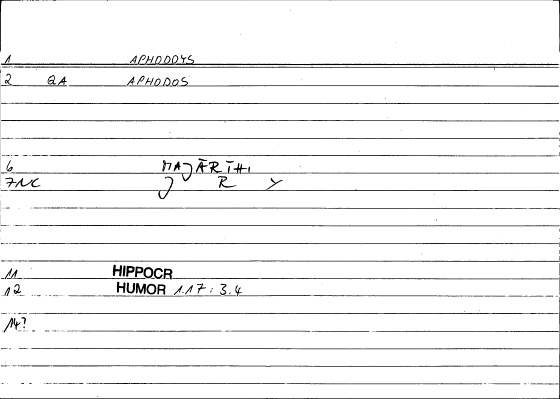 1 APHODOYS
2 QA APHODOS
6 MAJĀRĪHI
7NC J R Y
11 HIPPOCR
12 HUMOR 1.17:3.4
14?